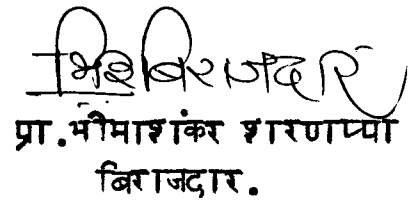 भिश बिराजदार
प्रा. भीमाशंकर शरणप्पा
बिराजदार.